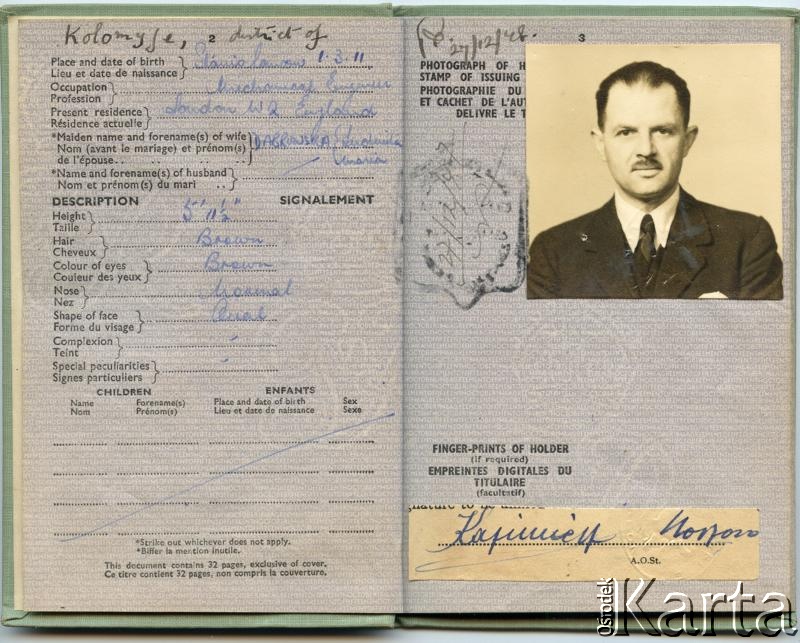 Kolomyje, 2 district of
Place and date of birth Stanisławow 1.3.11
Lieu et date de naissance
Occupation Mechanical Engineer
Profession
Present residence London W2 England
Résidence actuelle
*Maiden name and forename(s) of wife DĄBROWSKA, Ludmila
Nom (avant le mariage) et prénom(s) Maria
de l'épouse
*Name and forename(s) of husband
Nom et prénom(s) du mari
DESCRIPTION SIGNALEMENT
Height 5' 11½"
Taille
Hair Brown
Cheveux
Colour of eyes Brown
Couleur des yeux
Nose Normal
Nez
Shape of face Oval
Forme du visage
Complexion -
Teint
Special peculiarities -
Signes particuliers
CHILDREN ENFANTS
Name Forename(s) Place and date of birth Sex
Nom Prénom(s) Lieu et date de naissance Sexe
*Strike out whichever does not apply.
*Biffer la mention inutile.
This document contains 32 pages, exclusive of cover.
Ce titre contient 32 pages, non compris la couverture.
27/12/48. 3
PHOTOGRAPH OF H
STAMP OF ISSUING
PHOTOGRAPHIE DU
ET CACHET DE L'AUT
DELIVRE LE T
FINGER-PRINTS OF HOLDER
(if required)
EMPREINTES DIGITALES DU
TITULAIRE
(facultatif)
Kazimierz
A.O.St.
Ośrodek Karta